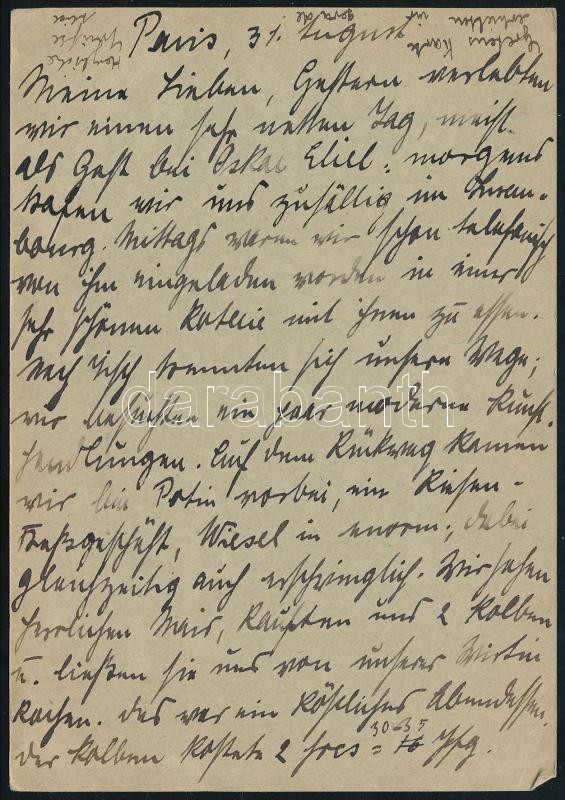 Paris, 31. August
Meine Lieben, Gestern verlebten
wir einen sehr netten Tag, meist
als Gast bei Oskar Eliel; morgens
trafen wir uns zufällig im Luxem-
bourg. Mittags waren wir schon telefonisch
von ihm eingeladen worden in einer
sehr schönen Roterie mit ihnen zu essen.
Nach Tisch trennten sich unsere Wege;
wir besuchten ein paar moderne Kunst-
handlungen. Auf dem Rückweg kamen
wir bei Potin vorbei, ein Riesen-
Fressgeschäft, Wiesel in enorm; dabei
gleichzeitig auch erschwinglich. Wir sahen
herrlichen Mais, kauften uns 2 Kolben
u. ließen sie uns von unserer Wirtin
kochen. Das war ein köstliches Abendessen.
der Kolben kostete 2 frcs = 30-35 Pfg.
Gretens Karte
erhielten wir
gerade
Herzliche
Grüsse
darabanth